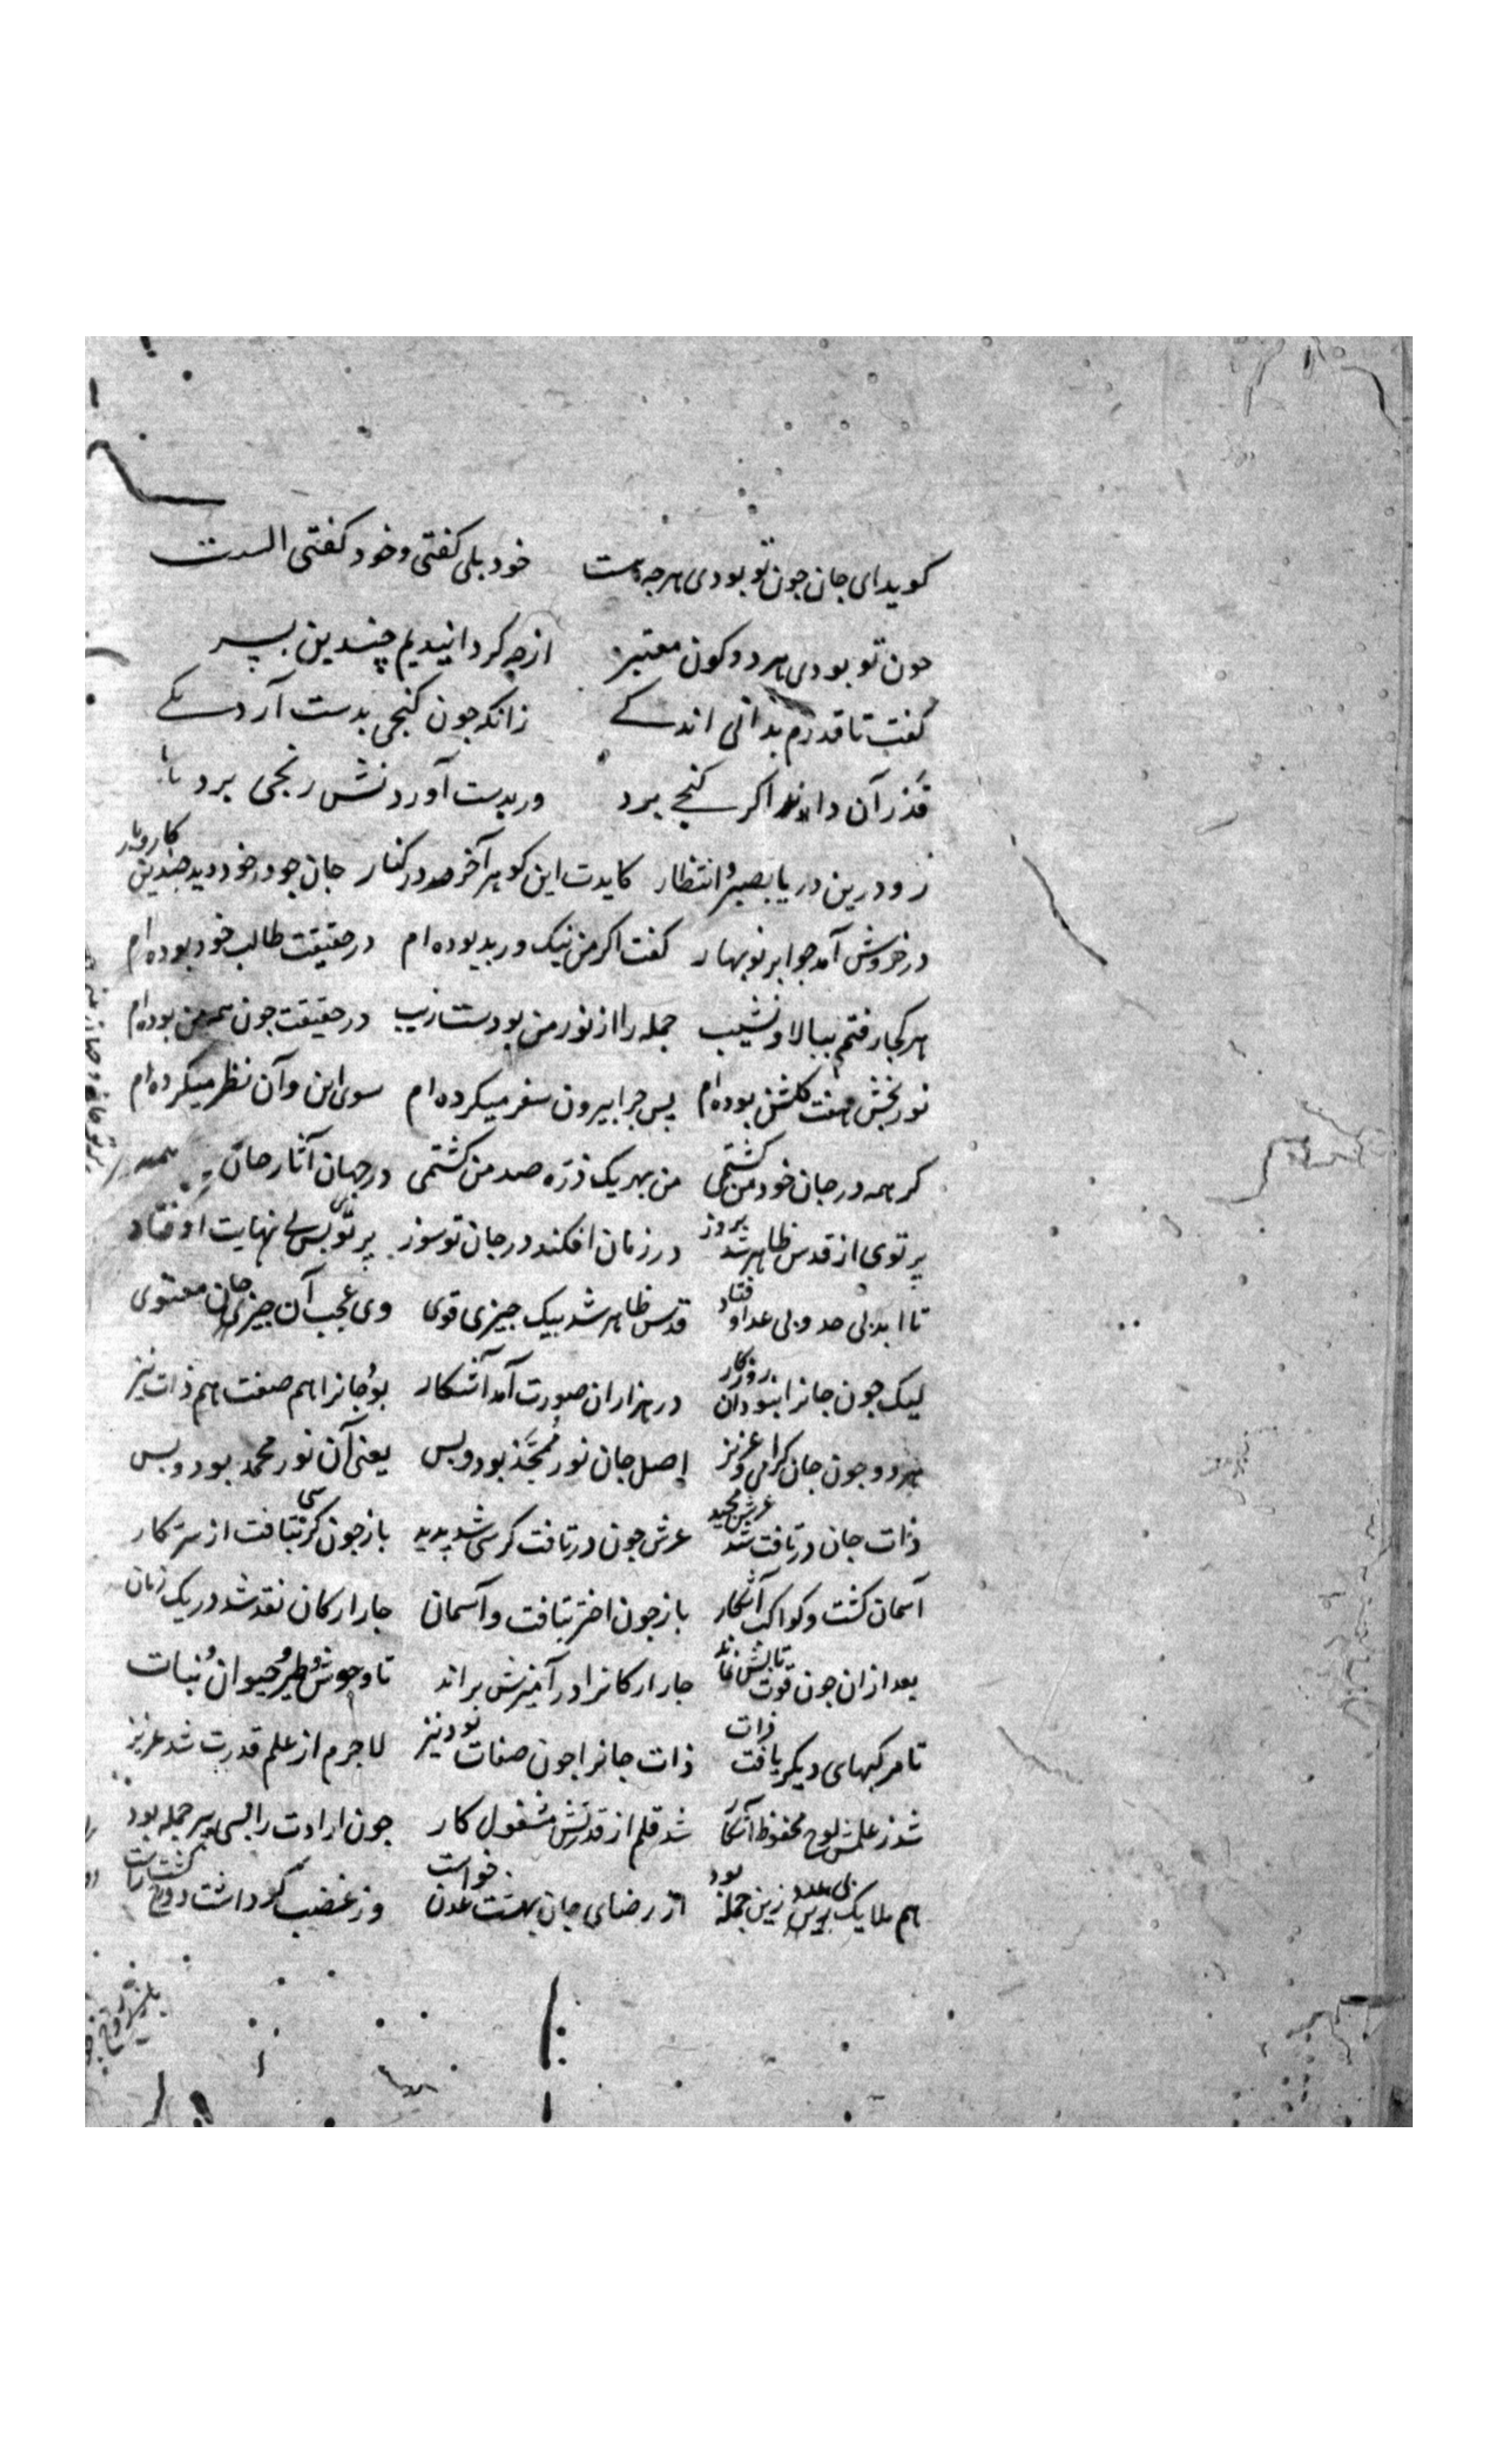 کوید ای جان جون تو بودی هرجه هست خود بلی کفتی و خود کفتی الست
جون تو بودی هر دو کون معتبر از چه کردانیدیم چندین بسر
کفت تا قدرم بدانی اندکے زانکه جون کنجی بدست آرد یکے
قدر آن داند اکر کنجے برد ور بدست آوردنش رنجی برد
زو درین دریا بصبر و انتظار کایدت این کوهر آخر در کنار جان جو در خود دید جندین کار و بار
در خروش آمد جو ابر نوبهار کفت اکر من نیک ور بد بوده ام در حقیقت طالب خود بوده ام
هر کجا رفتم ببالا و نشیب جمله را از نور من بودست زیب در حقیقت جون همه من بوده ام
نور بخش هفت کلشن بوده ام پس جرا بیرون سفر میکرده ام سوی این و آن نظر میکرده ام
کر همه در جان خود من کشتمی من بهر یک ذره صد من کشتمی در جهان آثار جان
پرتوی از قدس ظاهر شد بروز در زمان افکند در جان تو سوز پرتوی بس بی نهایت اوفتاد
تا ابد بی حد و بی عد اوفتاد قدس ظاهر شد بیک جیزی قوی وی عجب آن جیز جان معنوی
لیک جون جانرا بنود آن روزکار در هزاران صورت آمد آشکار بود جانرا هم صفت هم ذات نیز
هر دو جون جان کرامی و عزیز اصل جان نور مجرد بود و بس یعنی آن نور محمد بود و بس
ذات جان در تافت شد عرش مجید عرش جون در تافت کرسی شد پدید باز جون کرسی بتافت از سر کار
آسمان کشت و کواکب آشکار باز جون اختر بتافت و آسمان جار ارکان نقد شد در یک زمان
بعد از ان جون قوت تابش نماند جار ارکانرا در آمیزش براند تا وحوش و طیر و حیوان و نبات
تا مرکبهای دیکر یافت ذات ذات جانرا جون صفات بود نیز لاجرم از علم قدرت شد عزیز
شد ز علمش لوح محفوظ آشکار شد قلم از قدرتش مشغول کار جون ارادت را بسی بر جمله بود
هم ملایک بی عدد زین جمله بود از رضای جان بهشت عدن خواست وز غضب کو داشت دوزخ کشت راست